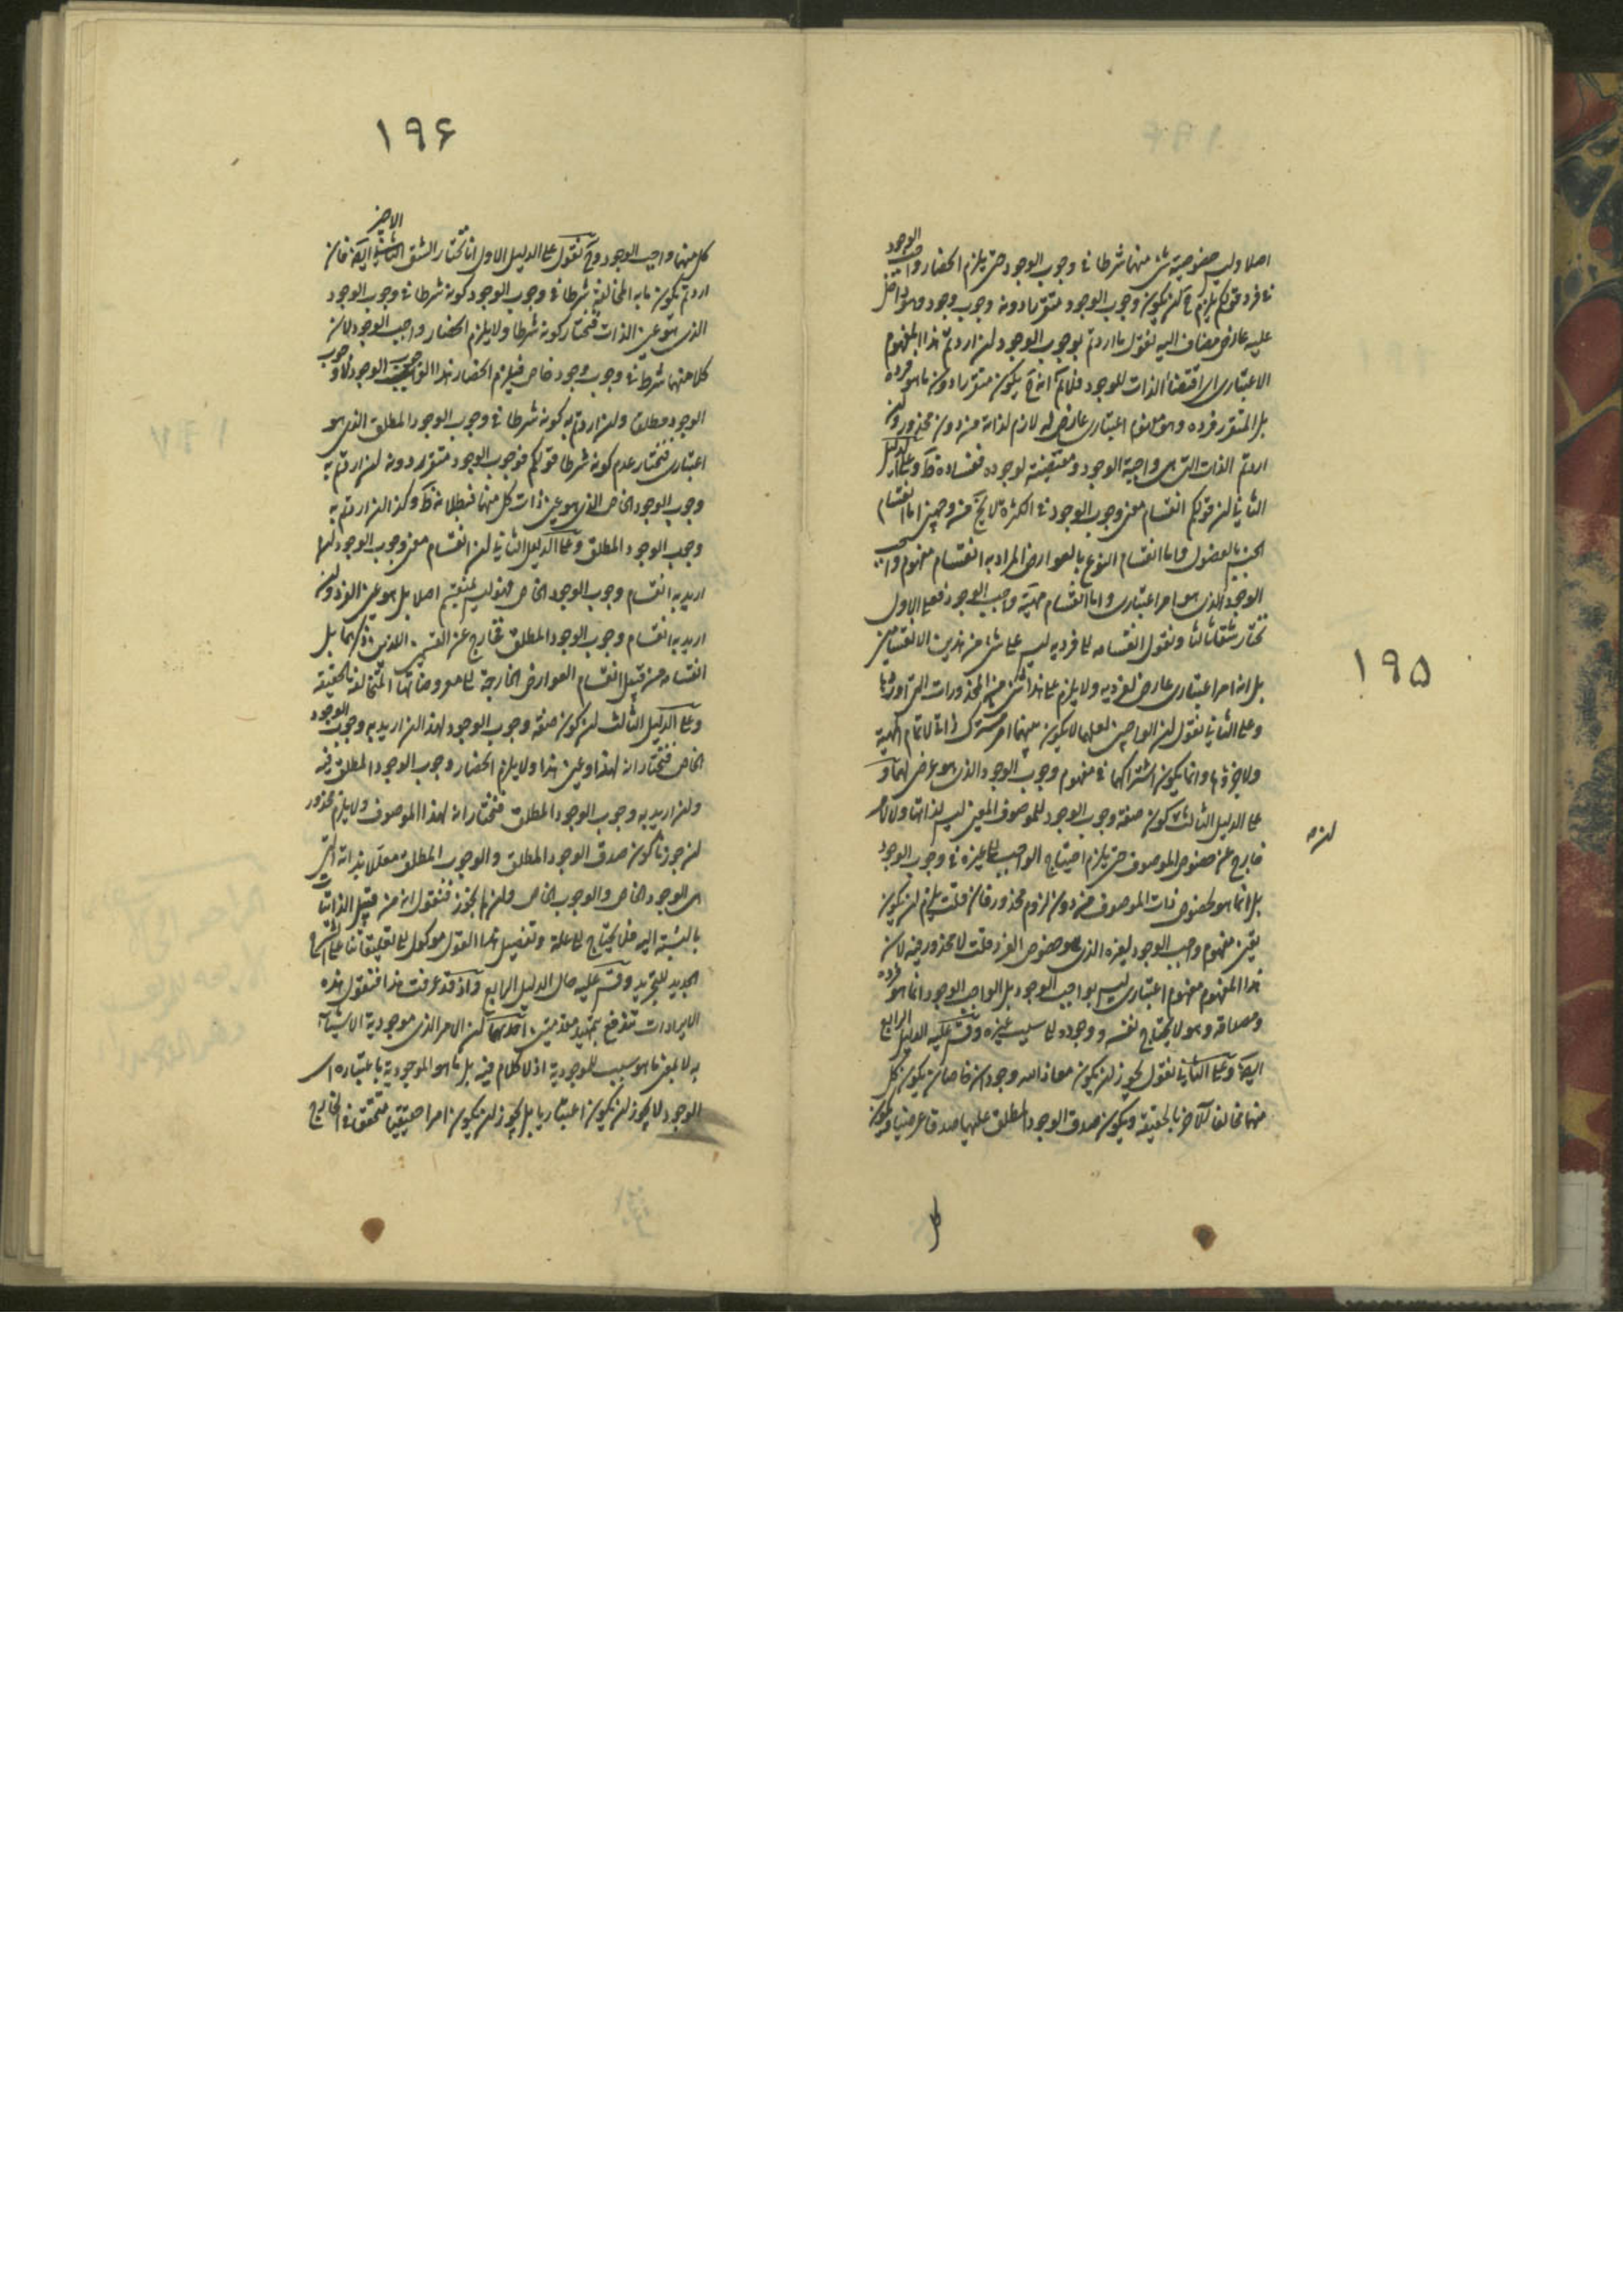 ۱۹۵
اصلا وليس خصوصية شئ منهما شرطا في وجوب الوجود حتى يلزم انحصار واجب الوجود
في فرد قولكم يلزم ح ان يكون وجوب الوجود متقررا دونه وجوب وجود وهو داخل
عليه عارض مضاف اليه نقول ما اردتم بوجوب الوجود ان اردتم هذا المفهوم
الاعتباري اي اقتضاء الذات للوجود فلانم انه ح يكون متقررا دون ما هو فرده
بل المتقرر فرده وهو مفهوم اعتباري عارض له لازم لذاته من دون محذور وان
اردتم الذات التي هي واجبة الوجود ومقتضية لوجوده ففساده ظ وعلى الدليل
الثاني ان قولكم انقسام معنى وجوب الوجود في الكثرة لا يخ من وجهين اما انقسام
الجنس بالفصول واما انقسام النوع بالعوارض المراد به انقسام مفهوم واجب
الوجود الذي هو امر اعتباري واما انقسام مهية واجب الوجود فعلى الاول
نختار شقا ثالثا ونقول انقسامه الى فرديه ليس على شئ من هذين الانقسامين
بل انه امر اعتباري عارض لفرديه ولا يلزم على هذا شئ من المحذورات التي اوردها
وعلى الثاني نقول ان الواجبين لعلهما لا يكون بينهما امر مشترك ذاتي لا تمام المهية
ولا جزؤها وانما يكون اشتراكهما في مفهوم وجوب الوجود الذي هو عرضي لهما و
على الدليل الثالث كون صفة وجوب الوجود للموصوف المعين ليس لذاتها ولا لامر
خارج عن خصوص الموصوف حتى يلزم احتياج الواجب الى غيره في وجوب الوجود
بل انما هو لخصوص ذات الموصوف من دون لزوم محذور فان قلت يلزم ان يكون
تعين مفهوم واجب الوجود لغيره الذي هو خصوص الفرد قلت لا محذور فيه لان
هذا المفهوم مفهوم اعتباري ليس بواجب الوجود بل الواجب الوجود انما هو فرده
ومصداقه وهو لا يحتاج نفسه ووجوده الى سبب غيره وقس عليه الدليل الرابع
ايضا وعلى الثاني نقول يجوز ان يكون معاذ الله وجودان خاصان يكون كل
منهما مخالفا للاخر بالحقيقة ويكون صدق الوجود المطلق عليهما صدقا عرضيا ويكون
كل
۱۹۶
كل منهما واجب الوجود وح نقول على الدليل الاول انا نختار الشق الاخير ايضا فان
اردتم بكون ما به المخالفة شرطا في وجوب الوجود كونه شرطا في وجوب الوجود
الذي هو عين الذات فنختار كونه شرطا ولا يلزم انحصار واجب الوجود لان
كلا منهما شرط في وجوب وجود خاص فيلزم انحصار هذا الوجوب الوجود لا وجوب
الوجود مطلقا وان اردتم به كونه شرطا في وجوب الوجود المطلق الذي هو
اعتباري فنختار عدم كونه شرطا قولكم فوجوب الوجود متقرر دونه ان اردتم به
وجوب الوجود الخاص الذي هو عين ذات كل منهما فبطلانه ظ وكذا ان اردتم به
وجوب الوجود المطلق وعلى الدليل الثاني ان انقسام معنى وجوب الوجود لهما
اريد به انقسام وجوب الوجود الخاص فهو ليس بمنقسم اصلا بل هو عين الفرد وان
اريد به انقسام وجوب الوجود المطلق فخارج عن القسمين اللذين ذكرهما بل
انقسامه من قبيل انقسام العوارض الخارجة الى معروضاتها المتخالفة بالحقيقة
وعلى الدليل الثالث ان كون صفة وجوب الوجود لهذا ان اريد به وجوب الوجود
الخاص فنختار انه لهذا وعين هذا ولا يلزم انحصار وجوب الوجود المطلق فيه
وان اريد به وجوب الوجود المطلق فنختار انه لهذا الموصوف ولا يلزم محذور
ان جوزنا كون صدق الوجود المطلق والوجوب المطلق معللا بذاته التي
هي الوجود الخاص والوجوب الخاص وان لم يجوز فنقول انه من قبيل الذاتيات
بالنسبة اليه فلا يحتاج الى علة وتفصيل هذا القول موكول الى تعليقاتنا على الشرح
الجديد للتجريد وقس عليه حال الدليل الرابع واذ قد عرفت هذا فنقول هذه
الايرادات تندفع بتمهيد مقدمتين احديهما ان الامر الذي موجودية الاشياء
به لا بمعنى ما هو سبب للموجودية اذ لا كلام فيه بل ما هو الموجودية باعتباره اي
الوجود لا يجوز ان يكون اعتباريا بل يجوز ان يكون امرا حقيقيا متحققا في الخارج